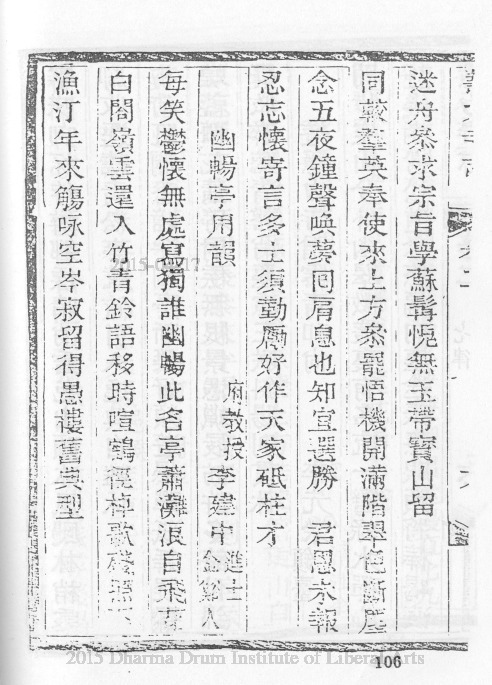 迷舟叅求宗旨學蘇髯愧無玉帶寳山留
同較羣英奉使來上方叅罷悟機開滿階翠色斷塵
念五夜鐘聲喚夢囘肩息也知宜選勝　君恩未報
忍忘懷寄言多士須勤勵好作天家砥柱才
幽暢亭用韻
府教授　李建中　進士　金谿人
每笑鬱懷無處寫獨誰幽暢此名亭蕭灘浪自飛
白閣嶺雲還入竹青鈴語移時喧鶴徑棹歌殘
漁汀年來觴咏空岑寂留得愚樓舊典型
106
2015 Dharma Drum Institute of Liberal Arts